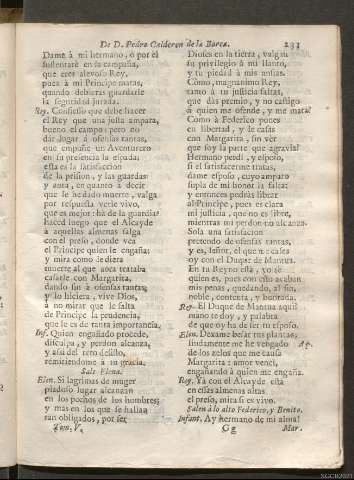 De D. Pedro Calderon de la Barca. 233
Dame à mi hermano, o por èl
sustentarè en la campaña,
que eres alevoso Rey,
pues à mi Principe matas,
quando debieras guardarle
la seguridad jurada.
Rey. Confiesso que debe hacer
el Rey que una justa ampara,
bueno el campo; pero no
dàr lugar à ofensas tantas,
que empuñe un Aventurero
en su presencia la espada:
esta es la satisfaccion
de la prision, y las guardas:
y aora, en quanto à decir
que le he dado muerte, valga
por respuesta verle vivo,
que es mejor: ha de la guardia?
haced luego que el Alcayde
à aquellas almenas salga
con el preso, donde vea
el Principe quien le engaña:
y mira como le diera
muerte al que aora trataba
casarle con Margarita,
dando fin à ofensas tantas;
y lo hiciera, vive Dios,
à no mirar que le falta
de Principe la prudencia,
que le es de tanta importancia.
Inf. Quien engañado procede,
disculpa, y perdon alcanza,
y assi del reto desisto,
remitiendome à su gracia.
Sale Elena.
Elen. Si lagrimas de muger
piadoso lugar alcanzan
en los pechos de los hombres;
y mas en los que se hallan
tan obligados, por ser
Tom. V.
Dioses en la tierra, valga
su privilegio à mi llanto,
y tu piedad à mis ansias.
Còmo, magnanimo Rey,
tanto à tu justicia faltas,
que das premio, y no castigo
à quien me ofende, y me mata?
Còmo à Federico pones
en libertad, y le casas
con Margarita, sin vèr
que soy la parte que agravia?
Hermano perdì, y esposo,
si el satisfacerme tratas,
dame esposo, cuyo amparo
supla de mi honor la falta;
y entonces podràs librar
al Principe, pues es clara
mi justicia, que no es libre,
mientras mi perdon no alcanza.
Sola una satisfacion
pretendo de ofensas tantas,
y es, señor, el que me casas
oy con el Duque de Mantua.
En tu Reyno està, yo sè
quien es, pues con esto acaban
mis penas, quedando, al fin,
noble, contenta, y honrada.
Rey. El Duque de Mantua aqui!
mano te doy, y palabra
de que oy ha de ser tu esposo.
Elen. Dexame besar tus plantas;
lindamente me he vengado Ap.
de los zelos que me causa
Margarita: amor vencì,
engañando à quien me engaña.
Rey. Yà con el Alcayde està
en essas almenas altas
el preso, mira si es vivo.
Salen à lo alto Federico, y Benito.
Infant. Ay hermano de mi alma!
Gg Mar.